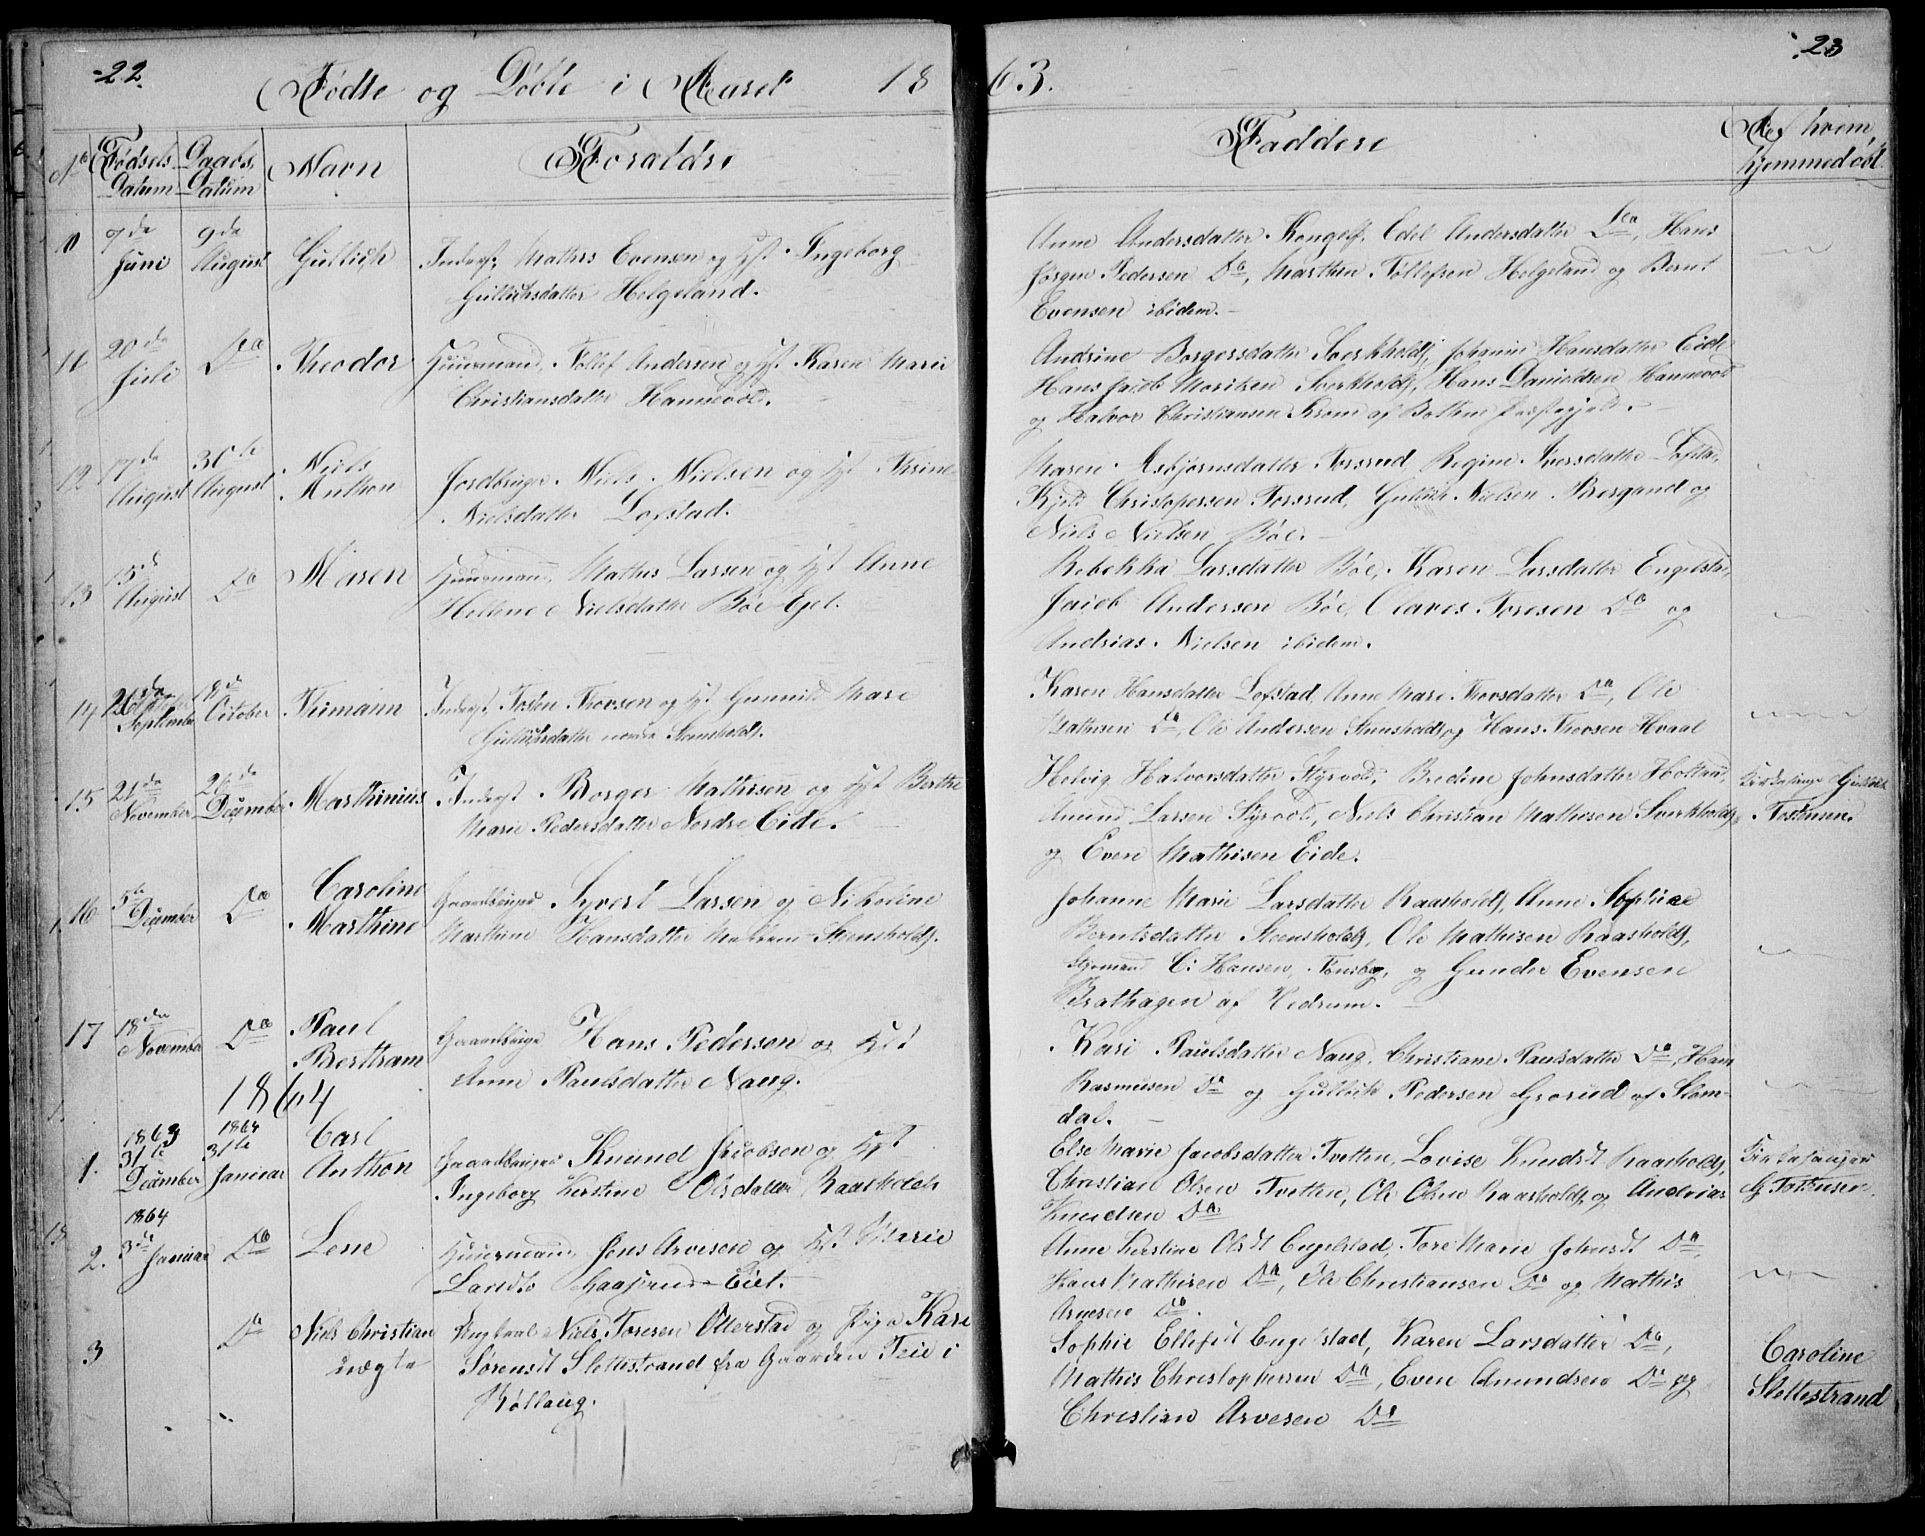 22.
Fødte og Døbte i Aaret 18
63.
23
No Fødsels Datum Daabs Datum Navn Forældre
Faddere
Af hvem hjemmedøbt.
10 7da Juni 9de August Gullich Inderst. Mathis Evensen og Hst Ingeborg
Gullichsdatter Helgeland.
Anne Andersdatter Edel Andersdatter Do, Hans
Jørgen Pedersen Do, Marthin Tollefsen Helgeland og Bernt
Evensen ibidem.
11 20de Juli Do Theodor Huusmand Tollef Andersen og Hst Karen Marie
Christiansdatter Hannevold.
Andrine Borgersdatter Sverkholdt, Johanne Hansdatter Eide
Hans Jacob Sverkholdt, Hans Danielsen Hannevold
og Halvor Christiansen af Præstegjeld.
12 17da August 30te August Niels Anthon Jordbruger Niels Nielsen og Hst Thrine
Nielsdatter Lofstad.
Maren Asbjørnsdatter Forsrud, Regine Iversdatter Lofstad,
Christophersen Forsrud, Gullich Nielsen Bergand og
Niels Nielsen Bøe.
13 15de August Do Maren Huusmand Mathis Larsen og Hst Anne
Helene Nielsdatter Bøe Eiet.
Rebekka Larsdatter Bøe, Karen Larsdatter Engelstad,
Jacob Andersen Bøe, Olaves Toresen Do og
Andrias Nielsen ibidem.
14 September 18de October Trimann Inderst, Thovsen og Hst Gunnild Mari
Gullichsdatter nordre Steensholdt.
Karen Hansdatter Lofstad, Anne Mari Thovsdatter Do, Ole
Mathisen Do, Ole Andersen Steensholdt og Hans Thovsen Hvaal
15 21de November 26de December Marthinius Inderst Borger Mathisen og Hst Berthe
Marie Pedersdatter Nordre Eide.
Helvig Halvorsdatter Styrvold, Bredine Johnsdatter Holtan,
Amund Larsen Styrvold, Niels Christian Mathisen Sverkholdt,
og Even Mathisen Eide.
Kirkesanger Gullich Tostensen
16 5te December Do Caroline Marthine Gaardbruger Syvert Larsen og Nikoline
Marthine Hansdatter Mellem-Steensholdt.
Johanne Marie Larsdatter Raasholdt, Anne Sophie
Berntsdatter Steensholdt, Ole Mathisen Raasholdt,
Styrmand C: Hansen, Tønsberg, og Gunder Evensen
Brathagen af Hedrum.
17 18de November Do Paul Bertram Gaardbruger Hans Pedersen og Hst
Anne Paulsdatter Naug.
Kari Paulsdatter Naug, Christiane Paulsdatter Do, Hans
Rasmusen Do og Gullich Pedersen Grorud af Slem-
dal.
1864
1. 1863 31te December 1864 31te Januar Carl Anthon Gaardbruger Knud Jacobsen og Hst
Ingeborg Kerstine Olsdatter Raasholdt
Else Marie Jacobsdatter Tvetten, Lovise Knudsdt Raasholdt,
Christian Olsen Tvetten, Ole Olsen Raasholdt, og Andrias
Knudsen Do
Kirkesanger G Tostensen.
2. 1864 3de Januar Do Lene Huusmand Jens Arvesen og Hst Marie
Larsdt Eiet.
Anne Kerstine Olsdt Engelstad, Tore Marie Johnsdt Do,
Hans Mathisen Do, Ole Christiansen Do og Mathis
Arvesen Do.
3 Do Niels Christian uægte Ungkarl Niels Toresen Otterstad og Pige Kari
Sørensdt Slettestrand fra Gaarden Teie i
Nøtterø.
Sophie Ellefsdt Engelstad, Karen Larsdatter Do,
Mathis Christophersen Do, Even Amundsen Do og
Christian Arvesen Do
Caroline Slettestrand